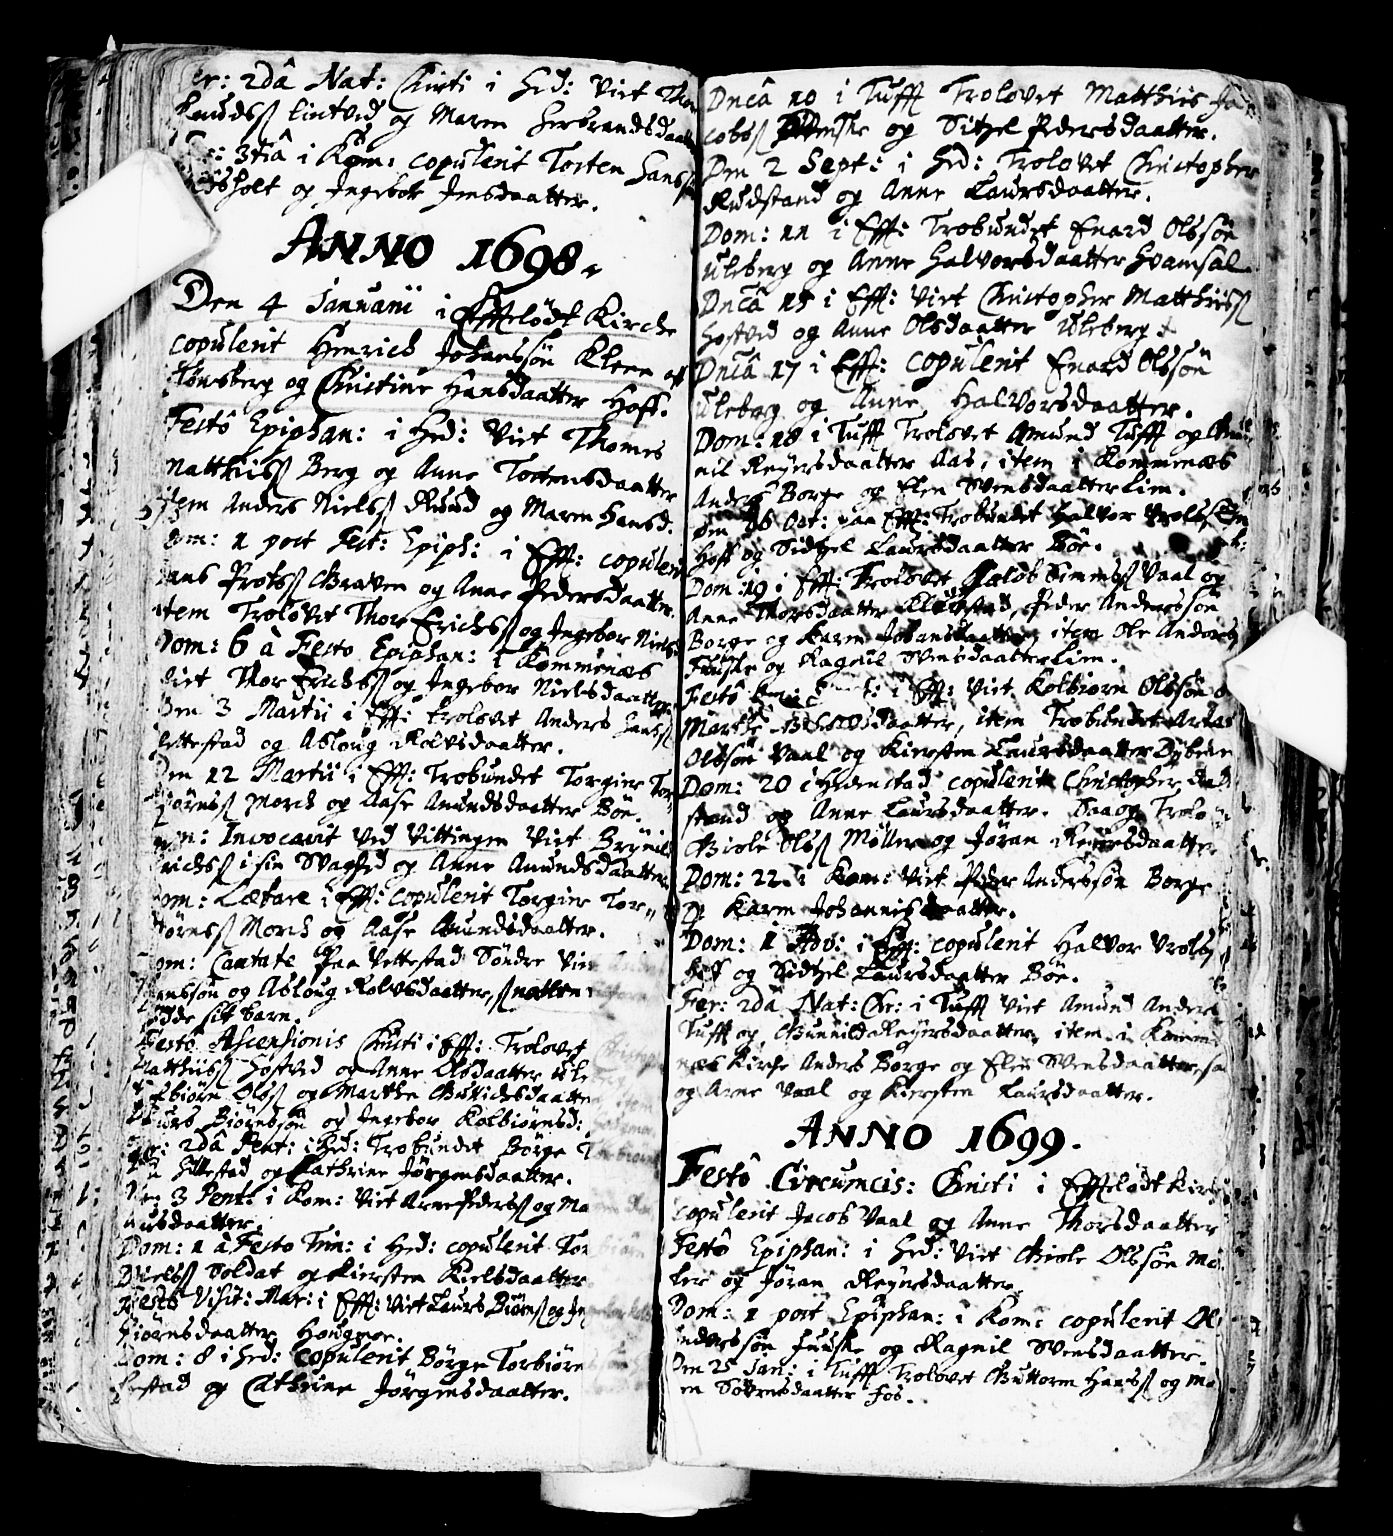 Fer: 2dâ Nat: Christi i Hed: Viet
Knudsß Lintved og Maren Herbrandsdaatter
Fer: 3tiâ i Kom: copulerit Torsten Hansß
holt og Ingebor Jensdaatter.
ANNO 1698.
Den 4 Januarii i Efftelødt Kirche
copulerit Henrich Johanssøn Kleen aff
Tønsberg og Christine Hansdaatter Hoff.
Festô Epiphan: i Hed: Viet Thomes
Matthiisß Berg og Anne Torstensdaatter
item Anders Nielsß Ruud og Maren Hansd:
Dom: 1 post Fest: Epiph: i Eff: copulerit
Hans Probsß Graven og Anne Pedersdaatter.
item Trolovet Thor Erichsß og Ingebor Niels
Dom: 6 à Festo Epiphan: i Kommenæs
Viet Thor Erichsß og Ingebor Nielsdaatter
Den 3 Martii i Eff: trolovet Anders Hansß
Vettestad og Asloug Rolvsdaatter.
Den 12 Martii i Eff: Trobundet Torgier Tor
biørnsß Morch og Aase Amundsdaatter Bøe.
Dom: Invocavit ved Vittingen Viet Brynild
Erichsß i sin Svaghed og Anne Amundsdaatter
Dom: Lætare i Eff: copulerit Torgier Tor
biørnsß Morch og Aase Amundsdaatter.
Dom: Cantate Paa Vettestad Søndre Viet
Hanssøn og Asloug Rolvsdaatter,
døde sit barn.
Festô Ascensionis Christi i Eff: Trolovet
Matthiisß Hostved og Anne Olsdaatter Ule
Kolbiørn Olsß og Marthe Gullichsdaatter
Laurs Biørnssøn og Ingebor Kolbiørnsd:
Fer: 2dâ Pent: i Hed: Trobundet Børge T
Hillestad og Cathrine Jørgensdaatter.
Den 3 Pent: i Kom: Viet Arne Pedersß og Ma
daatter.
Dom: 1 à Festo Trin: i Hed: copulerit Tor
Nielsß Soldat og Kiersten Kielsdaatter
Festô Visit: Mar: i Eff: Viet Laurs Biørnsß og In
biørnsdaatter Hougmoe.
Dom: 8 i Hed: copulerit Børge Torbiørn
lestad og Cathrine Jørgensdaatter.
Dncâ 10 i Tufft Trolovet Matthiis Ja
cobsß og Sitzel Pedersdaatter.
Den 2 Sept: i Hed: Trolovet Christopher
Rudstand og Anne Laursdaatter.
Dom: 11 i Eff: Trobundet Enard Olssøn
Uleberg og Anne Halvorsdaatter Hvamsal
Dncâ 15 i Eff: Viet Christopher Matthiisß
Hostved og Anne Olsdaatter Uleberg
Dncâ 17 i Eff: copulerit Enard Olssøn
Uleberg og Anne Halvorsdaatter.
Dom: 18 i Tufft Trolovet Amund Tufft og Gun
nil Reyersdaatter Aas, item i Kommenæs
Anders Borge og Elen Svensdaatter Lim.
Den 16 Oct: paa Eff: Trobundet Halvor Vrolsß
Hoff og Sidtzel Laursdaatter Bøe.
Dom: 19 i Eff: Trolovet Jacob Simmesß Vaal og
Anne Thorsdaatter, Peder Anderssøn
Borge og Karen Johansdaatter, item Ole Anders
Fuuske og Ragnil Svensdaatter Lim.
Festô i Eff: Viet Kolbiørn Olssøn
Marthe daatter, item Trobundet Arne
Olssøn Vaal og Kiersten Laursdaatter
Dom: 20 i Hedenstad copulerit Christopher Rud
stand og Anne Laursdaatter. Saa og Trolo
Giole Olsß Møller og Jøran Reyersdaatter
Dom: 22. i Kom: Viet Peder Anderssøn Borge
og Karen Johannisdaatter.
Dom: 1 Adv: i Eff: copulerit Halvor Vrolsß
Hoff og Sidtzel Laursdaatter Bøe.
Fer: 2dâ Nat: Chr: i Tufft Viet Amund Anders
Tufft og Gunnild Reyersdaatter, item i Komme
næs Kirche Anders Borge og Elen Svensdaatter, sa
og Arne Vaal og Kiersten Laursdaatter.
ANNO 1699.
Festô Circumcis: Christi i Efftelødt Kirche
copulerit Jacob Vaal og Anne Thorsdaatter
Festô Epiphan: i Hed: Viet Giole Olssøn Møl
ler og Jøran Reyersdaatter.
Dom: 1 post Epiphan: i Kom: copulerit Ole
Anderssøn Fuuske og Ragnil Svensdaatter.
Den 25 Jan: i Tufft Trolovet Guttorm Hansß og Ma
en Sørensdaatter Fos.